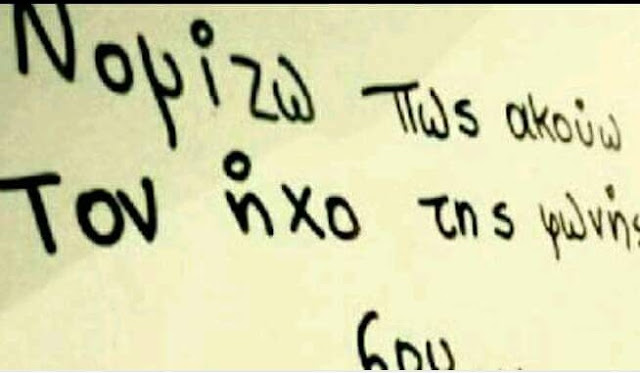 Νομίζω πως ακούω
Τον ήχο της φωνής
σου...